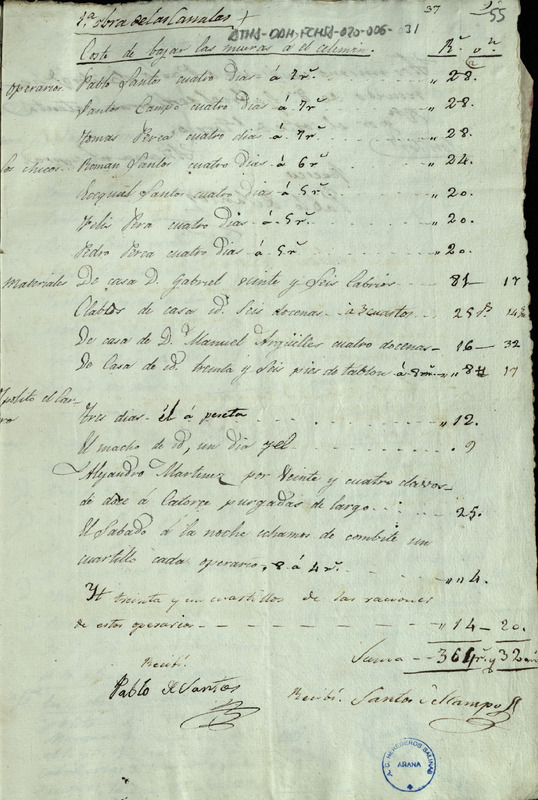 1ª obra de las Canales
37
55
ATHA-DAH-FCHSA-020-006-031
Costo de bajar las muras á el celemin. Rˢ vⁿ
operarios Pablo Santos cuatro dias á 7 rˢ. " 28.
Santos Campo cuatro dias á 7 rˢ " 28.
Tomas Berca cuatro dias á 7 rˢ " 28.
los chicos Roman Santos cuatro dias á 6 rˢ " 24.
Santos cuatro dias á 5 rˢ " 20.
Felis cuatro dias á 5 rˢ " 20.
Pedro Berca cuatro dias á 5 rˢ " 20.
Materiales De casa D. Gabriel veinte y seis Cabrios 81 — 17
Clabos de casa id. seis docenas á 3 cuartos 25 14
De casa de D. Manuel Arguelles cuatro docenas — 16 — 32
De Casa de id. treinta y seis pies de tablon á 8 17
Ypolito el Carro
Tres dias - él á peseta " 12.
El macho de id, un dia y el . 9
Alejandro Martinez por veinte y cuatro clavos
de doce a Catorce purgadas de largo 25.
El Sabado á la noche echamos de combite un
cuartillo cada operario, 8 á 4 rˢ. " " 4.
Yt treinta y un cuartillos de las raciones
de estos operarios " 14 — 20.
Suma -- 364 rˢ y 32 mˢ
Recibí
Pablo de Santos
Recibí. Santos del Campo
A.C. HEREDEROS SALINAS
ARANA